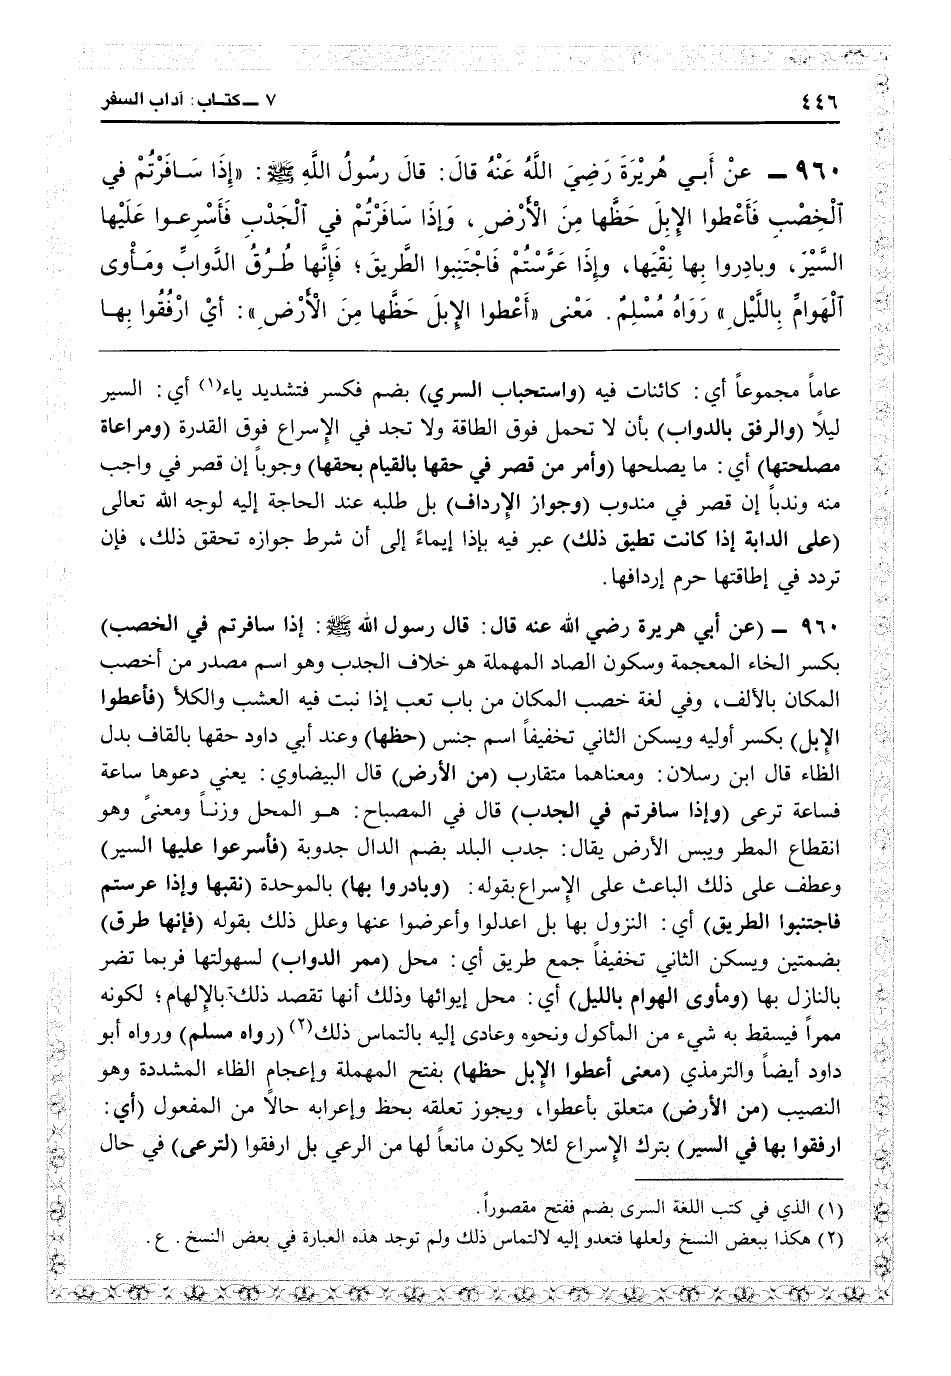 ٤٤٦
٧ ــ كتـاب: آداب السفر
٩٦٠ ــ عنْ أَبـي هُرِيْرَةَ رَضِيَ اللَّهُ عَنْهُ قالَ: قالَ رسُولُ اللَّهِ ﷺ: «إِذَا سَـافَرْتُمْ في
ٱلْخِصْبِ فَأَعْطوا الإِبلَ حَظَّها مِنَ الْأَرْضِ، وَإِذَا سَافَرْتُمْ في ٱلْجَدْبِ فَأَسْرِعـوا عَلَيْها
السَّيْرَ، وبادِروا بِها نِقْيَها، وإِذَا عَرَّسْتُمْ فَاجْتَنِبوا الطَّريقَ؛ فَإِنَّها طُـرُقُ الدَّوابِّ ومَـأْوى
ٱلْهَوامِّ بِاللَّيْلِ» رَوَاهُ مُسْلِمٌ. مَعْنى «أَعْطوا الإِبلَ حَظَّها مِنَ الْأَرْضِ»: أيْ ارْفُقُوا بِهـا
عاماً مجموعاً أي: كائنات فيه (واستحباب السري) بضم فكسر فتشديد ياء(١) أي: السير
ليلًا (والرفق بالدواب) بأن لا تحمل فوق الطاقة ولا تجد في الإسراع فوق القدرة (ومراعاة
مصلحتها) أي: ما يصلحها (وأمر من قصر في حقها بالقيام بحقها) وجوباً إن قصر في واجب
منه وندباً إن قصر في مندوب (وجواز الإرداف) بل طلبه عند الحاجة إليه لوجه الله تعالى
(على الدابة إذا كانت تطيق ذلك) عبر فيه بإذا إيماءً إلى أن شرط جوازه تحقق ذلك، فإن
تردد في إطاقتها حرم إردافها.
٩٦٠ ــ (عن أبي هريرة رضي الله عنه قال: قال رسول الله ﷺ: إذا سافرتم في الخصب)
بكسر الخاء المعجمة وسكون الصاد المهملة هو خلاف الجدب وهو اسم مصدر من أخصب
المكان بالألف، وفي لغة خصب المكان من باب تعب إذا نبت فيه العشب والكلأ (فأعطوا
الإبل) بكسر أوليه ويسكن الثاني تخفيفاً اسم جنس (حظها) وعند أبي داود حقها بالقاف بدل
الظاء قال ابن رسلان: ومعناهما متقارب (من الأرض) قال البيضاوي: يعني دعوها ساعة
فساعة ترعى (وإذا سافرتم في الجدب) قال في المصباح: هـو المحل وزنـاً ومعنىً وهو
انقطاع المطر ويبس الأرض يقال: جدب البلد بضم الدال جدوبة (فأسرعوا عليها السير)
وعطف على ذلك الباعث على الإسراع بقوله: (وبادروا بها) بالموحدة (نقبها وإذا عرستم
فاجتنبوا الطريق) أي: النزول بها بل اعدلوا وأعرضوا عنها وعلل ذلك بقوله (فإنها طرق)
بضمتين ويسكن الثاني تخفيفاً جمع طريق أي: محل (ممر الدواب) لسهولتها فربما تضر
بالنازل بها (ومأوى الهوام بالليل) أي: محل إيوائها وذلك أنها تقصد ذلك بالإلهام؛ لكونه
ممراً فيسقط به شيء من المأكول ونحوه وعادى إليه بالتماس ذلك(٢) (رواه مسلم) ورواه أبو
داود أيضاً والترمذي (معنى أعطوا الإبل حظها) بفتح المهملة وإعجام الظاء المشددة وهو
النصيب (من الأرض) متعلق بأعطوا، ويجوز تعلقه بحظ وإعرابه حالًا من المفعول (أي:
ارفقوا بها في السير) بترك الإسراع لئلا يكون مانعاً لها من الرعي بل ارفقوا (لترعى) في حال
(١) الذي في كتب اللغة السرى بضم ففتح مقصوراً.
(٢) هكذا ببعض النسخ ولعلها فتعدو إليه لالتماس ذلك ولم توجد هذه العبارة في بعض النسخ. ع.